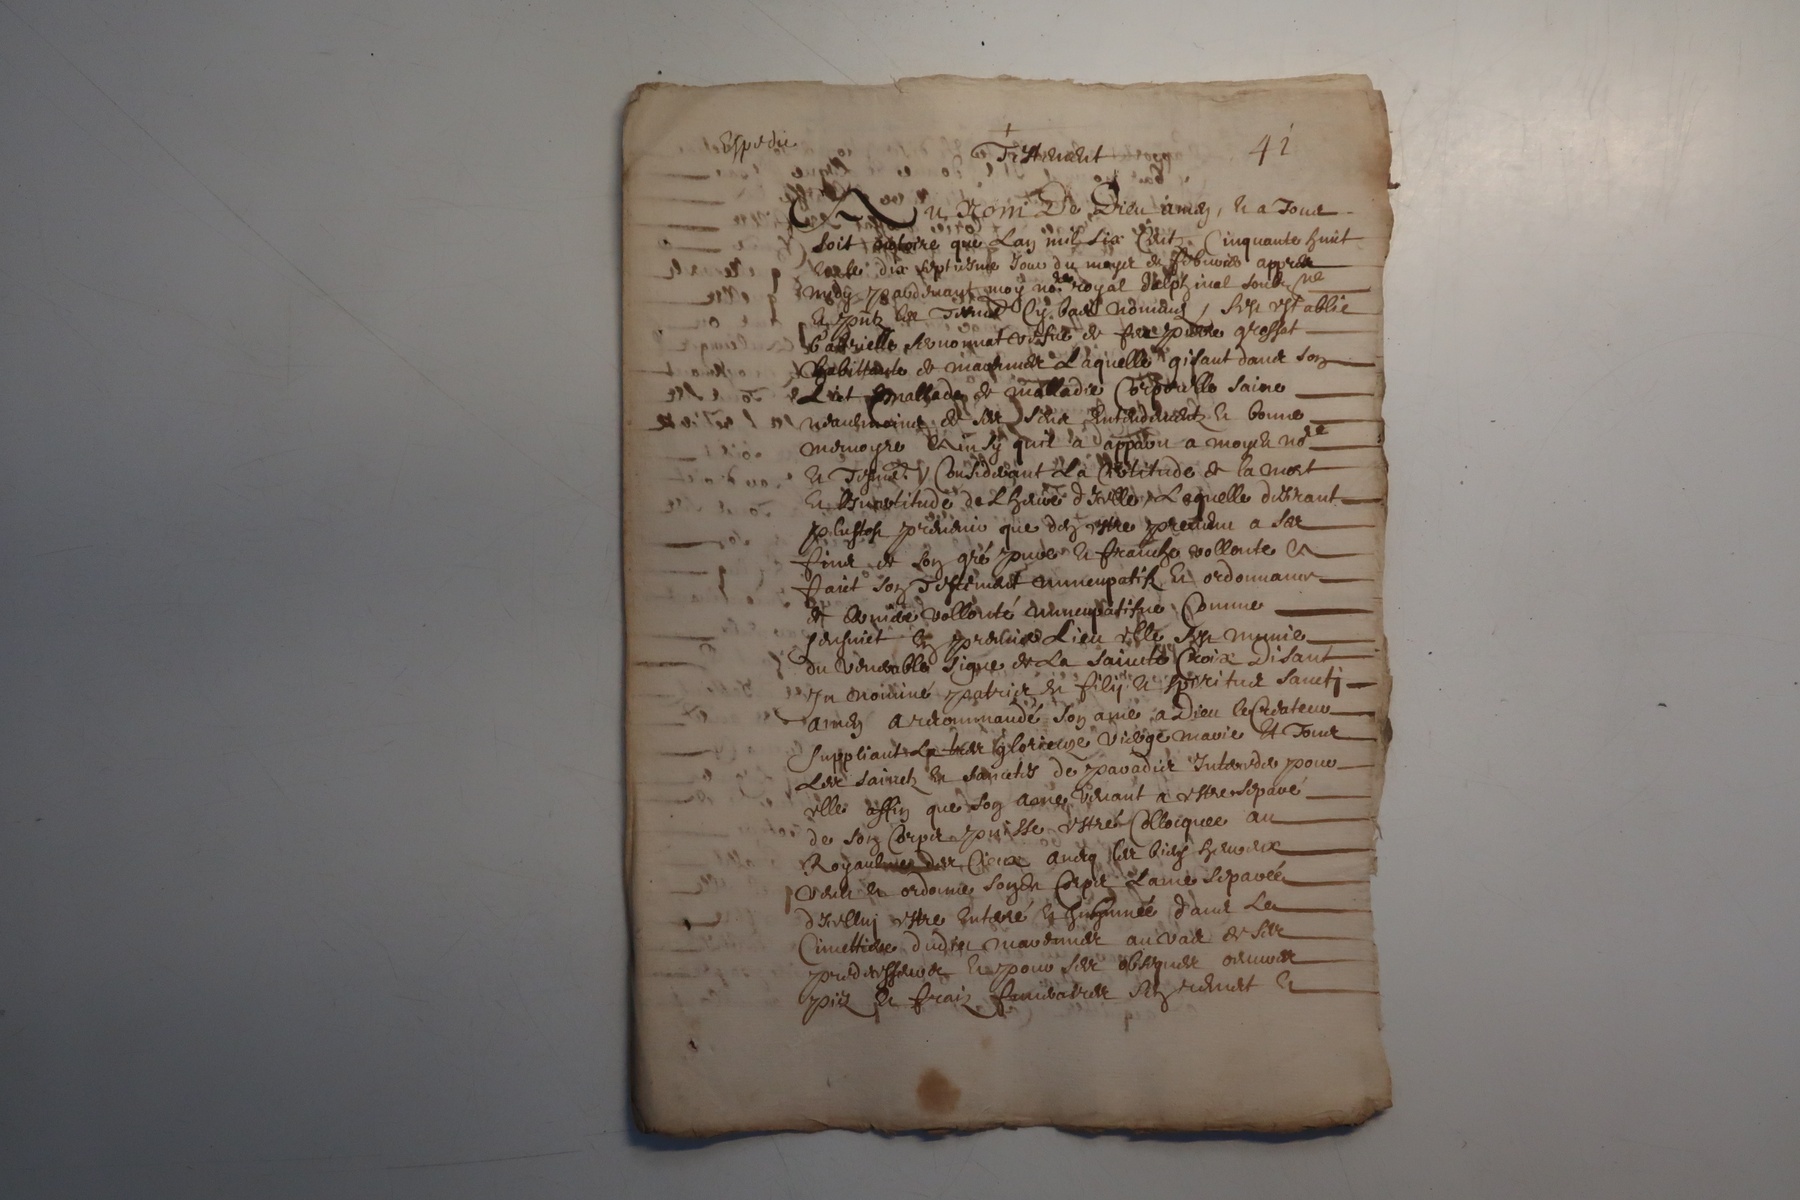 Expedie
Testement
41
Au Nom De Dieu amen, et a Tous
soit notoire que Lan mil six Centz Cinquante huit
et le dix septiesme Jour du moys de febvrier appres
midy pardevant moy no.re royal delphinal soubz.ne
et presentz les Tesmoingz Cy bas nommes, s'est establie
Gabrielle vefve de feu pierre grosset
habittante de Laquelle gisant dans son
Lict mallade de malladie Corporelle saine
neaulmoins de ses sens Entendement et bonne
memoyre Ainsy quil a apparu a moydit no.re
et Tesmoingz Considerant La Certitude de la mort
et Lincertitude de Lheure d'icelle, Laquelle desirant
plustost prevenir que den estre prevenue a ses
fins de son gré pure et franche vollonte a
faict son Testement nuncupatif et ordonnance
de derniere vollonté nuncupatifve Comme
sensuict En premier Lieu elle s'est munie
du venerable signe de La saincte Croix Disant
In nominé patris et filij et spiritus sancti
amen a recommandé son ame a Dieu le Createur
suppliant La tres glorieuze vierge marie Et Tous
Les sainctz et sainctes de paradis Interceder pour
elle affin que son ame venant a estre separé
de son Corps puisse estre Colloquee au
Royaulme des Cieux avecq les bien heureux
veut et ordonne sondit Corps Lame separée
d'icelluy estre enterré et Inhumée dans Le
Cimettiere dudit au vas de ses
predecesseurs Et pour ses obseques oeuvres
pies et fraiz funeraires s'est remet et